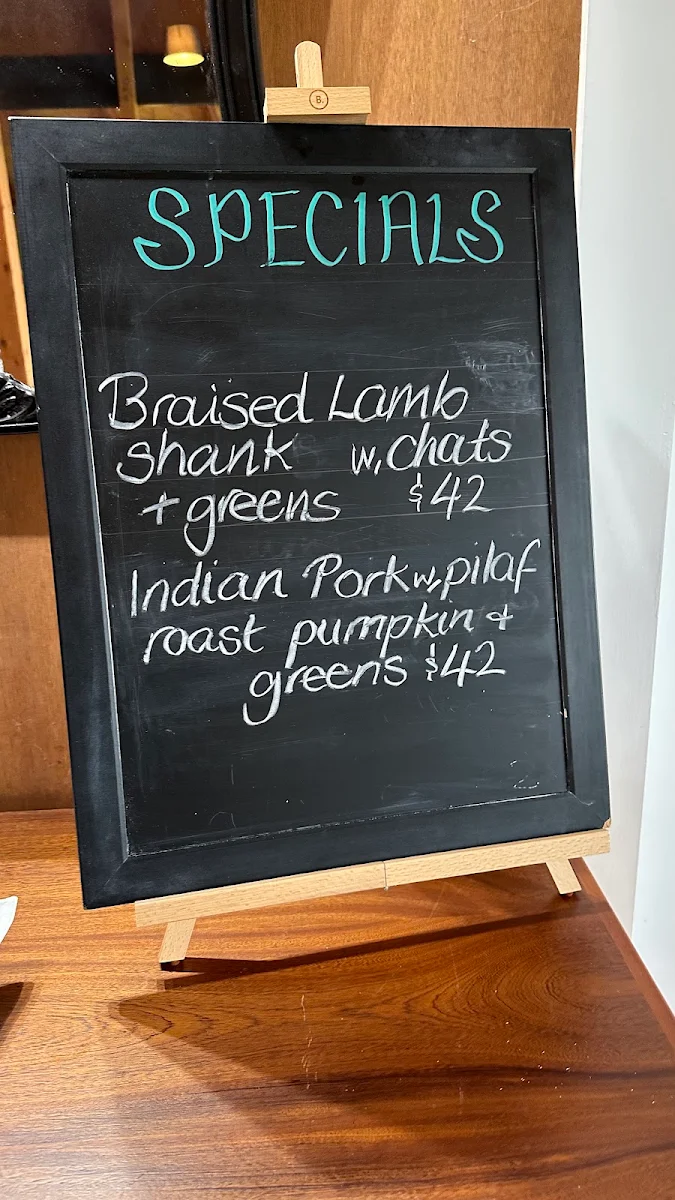 B.
SPECIALS
Braised Lamb
shank w, chats
+ greens $42
Indian Pork w, pilaf
roast pumpkin +
greens $42